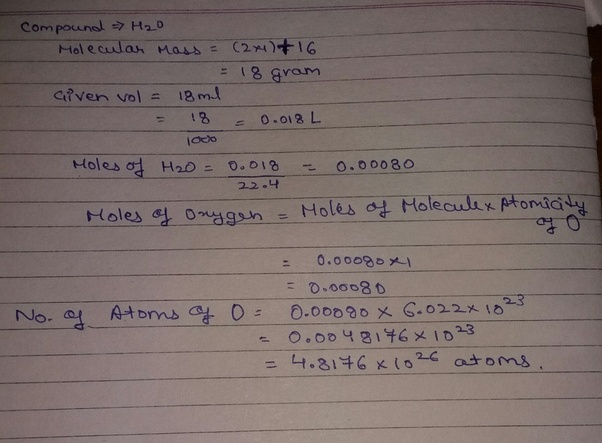 Compound ⇒ H2O
Molecular Mass = (2×1)+16
= 18 gram
Given vol = 18ml
= 18/1000 = 0.018 L
Moles of H2O = 0.018/22.4 = 0.00080
Moles of Oxygen = Moles of Molecule × Atomicity of O
= 0.00080×1
= 0.00080
No. of Atoms of O = 0.00080 × 6.022×10^23
= 0.0048176×10^23
= 4.8176 × 10^26 atoms.